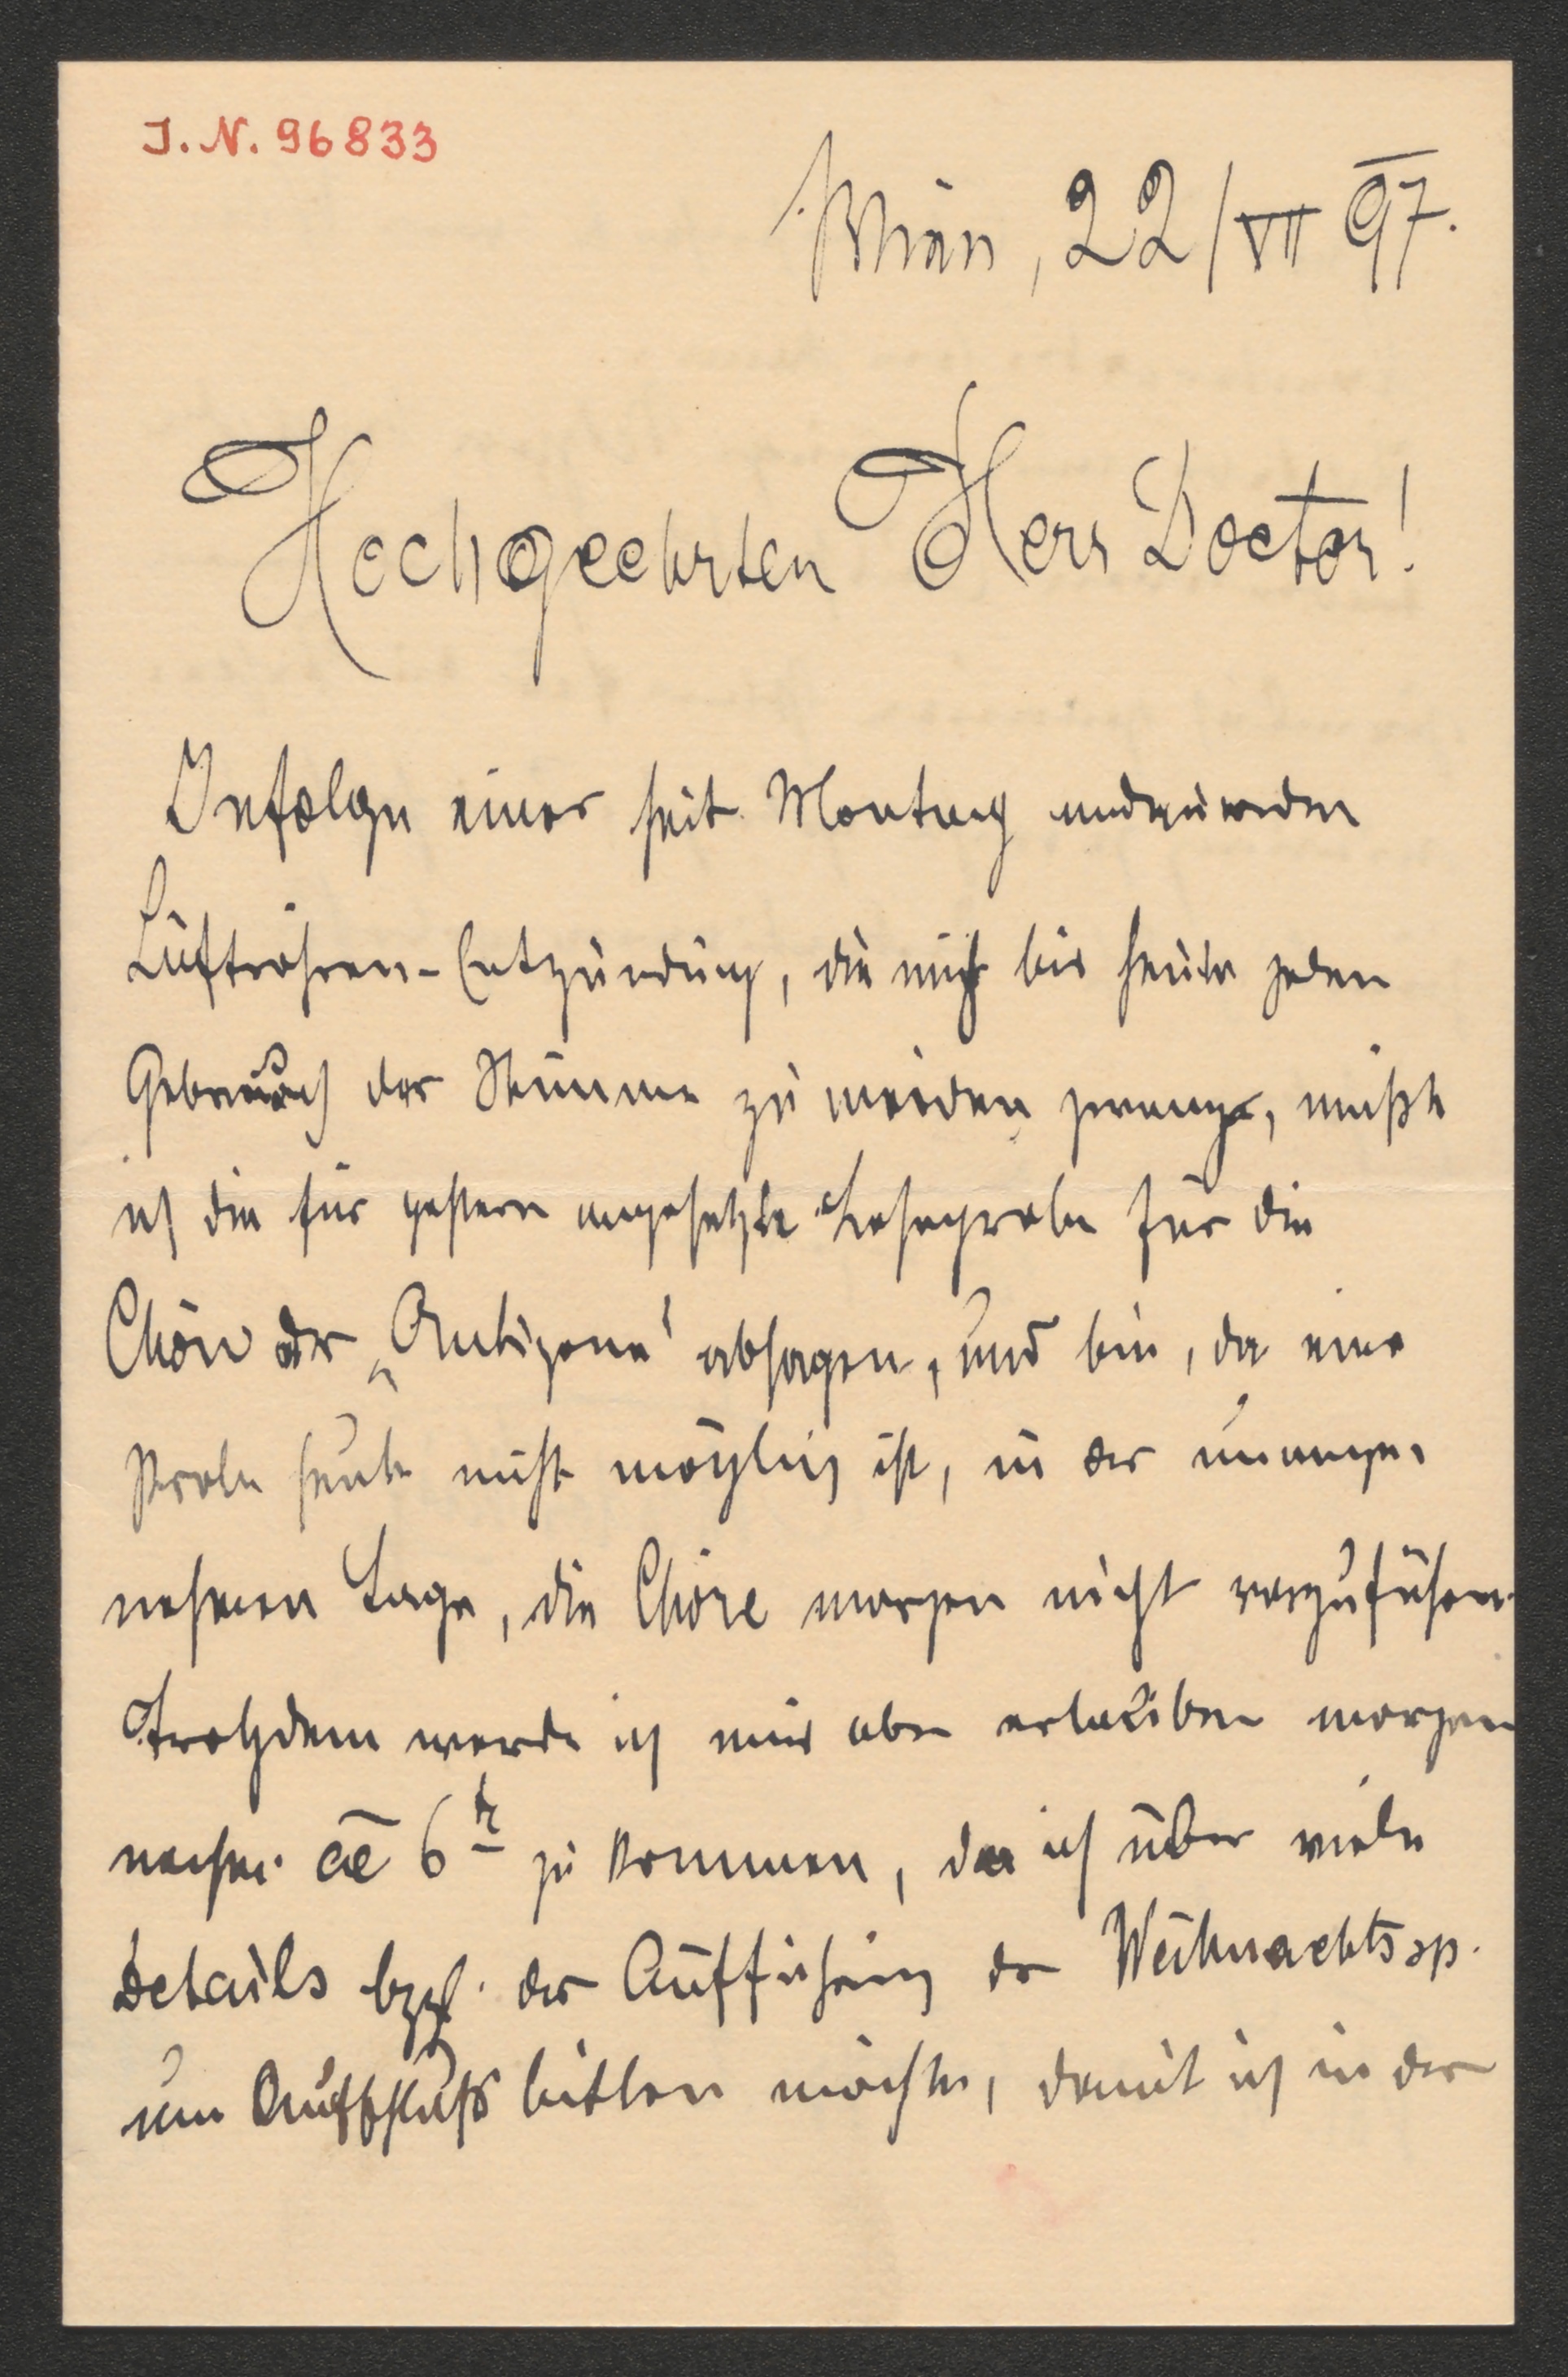 J. N. 96833
Wien, 22/VII 97.
Hochgeehrten Herr Doctor!
Infolge einer seit Montag andauernden
Luftröhren-Entzündung, die mich bis heute jeden
Gebrauch der Stimme zu meiden zwang, mußte
ich die für gestern angesetzte Leseprobe für die
Chöre der „Antigone" absagen, und bin, da eine
Probe heute nicht möglich ist, in der unange-
nehmen Lage, die Chöre morgen nicht vorzuführen.
Trotzdem werde ich mir aber erlauben morgen
nachm. ca 6 h zu kommen, da ich über viele
Details bzgl. der Aufführung der Weihnachtssp.
um Aufschluß bitten möchte, damit ich in der